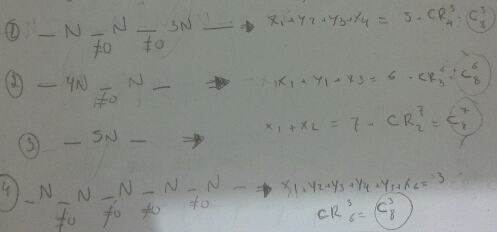 ① _ N _ N _ 3N _ → x1+y2+y3+y4 = 3 · CR 3 4 = C 3 8
≠0 ≠0
② _ 4N _ N _ → x1+y1+x3 = 6 · CR 6 3 = C 6 8
≠0
③ _ 5N _ → x1+x2 = 7 · CR 7 2 = C 7 8
④ _ N _ N _ N _ N _ N _ → x1+y2+y3+y4+y5+x6 = 3
≠0 ≠0 ≠0 ≠0
CR 3 6 = C 3 8